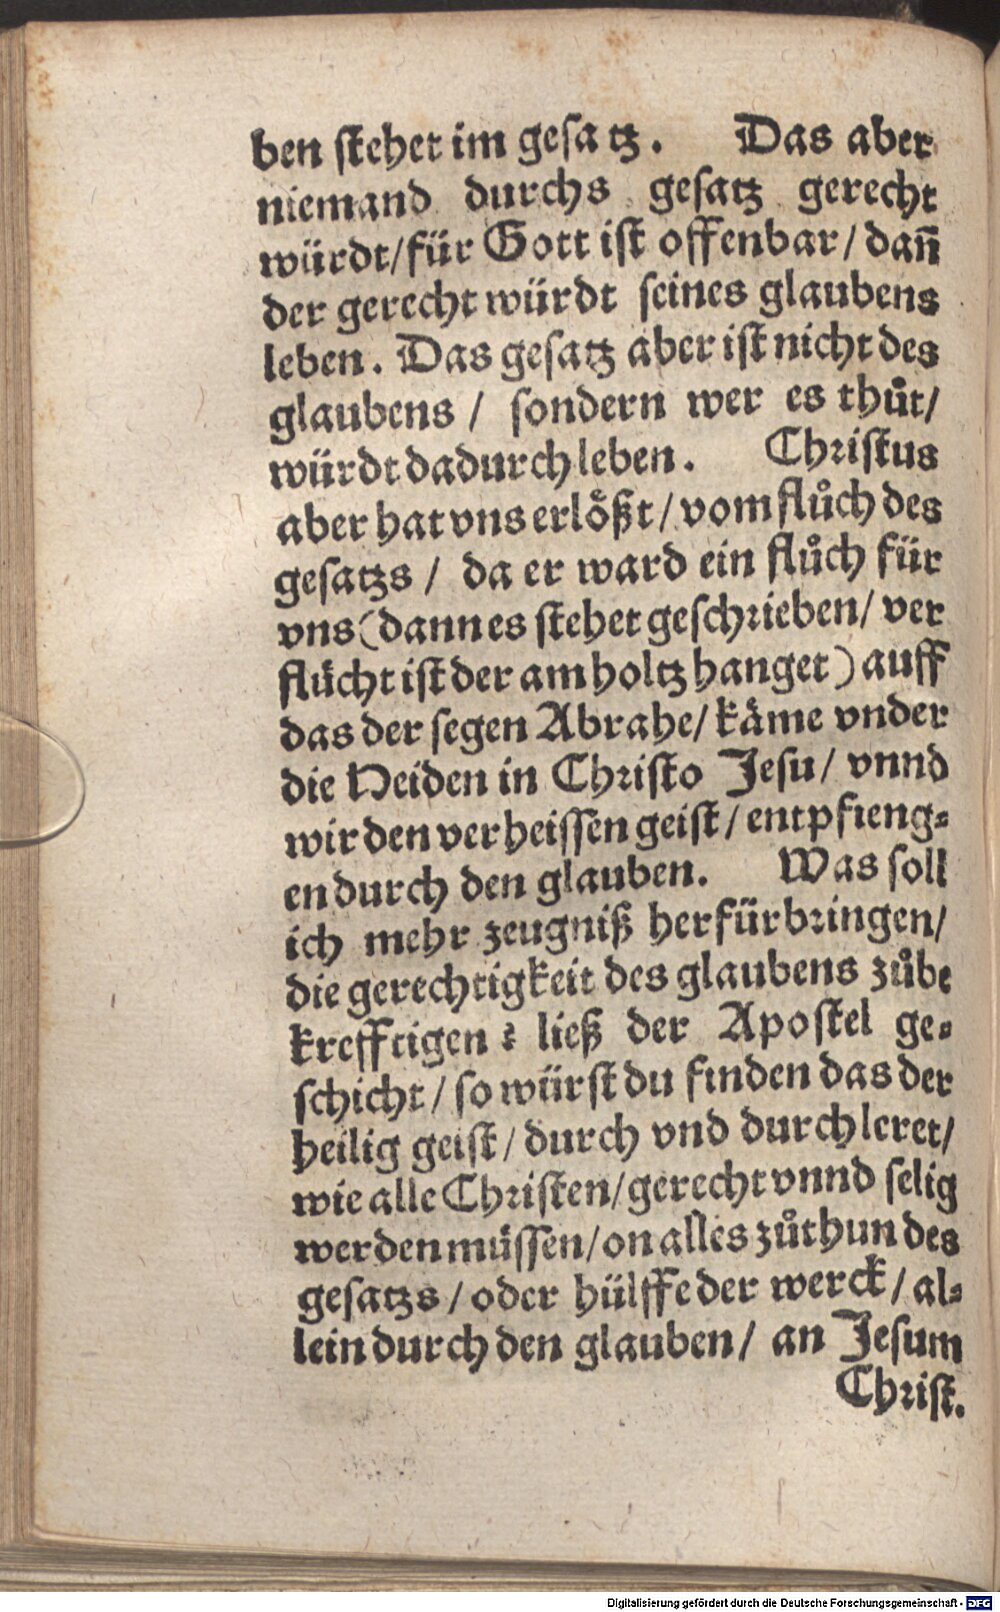 ben stehet im gesa tz. Das aber
niemand durchs gesatz gerecht
würdt/für Gott ist offenbar/dañ
der gerecht würdt seines glaubens
leben. Das gesatz aber ist nicht des
glaubens / sondern wer es thůt/
würdt dadurch leben. Christus
aber hat vns erlößt/vom flůch des
gesatzs / da er ward ein flůch für
vns(dann es stehet geschrieben/ver
flůcht ist der am holtz hanget) auff
das der segen Abrahe/käme vnder
die Heiden in Christo Jesu/ vnnd
wir den verheissen geist/entpfieng⸗
en durch den glauben. Was soll
ich mehr zeugniß herfürbringen/
die gerechtigkeit des glaubens zůbe
krefftigen? ließ der Apostel ge⸗
schicht/so würst du finden das der
heilig geist/durch vnd durch leret/
wie alle Christen/gerecht vnnd selig
werden müssen/on alles zůthun des
gesatzs/oder hülffe der werck/al⸗
lein durch den glauben/ an Jesum
Christ.
Digitalisierung gefördert durch die Deutsche Forschungsgemeinschaft - DFG